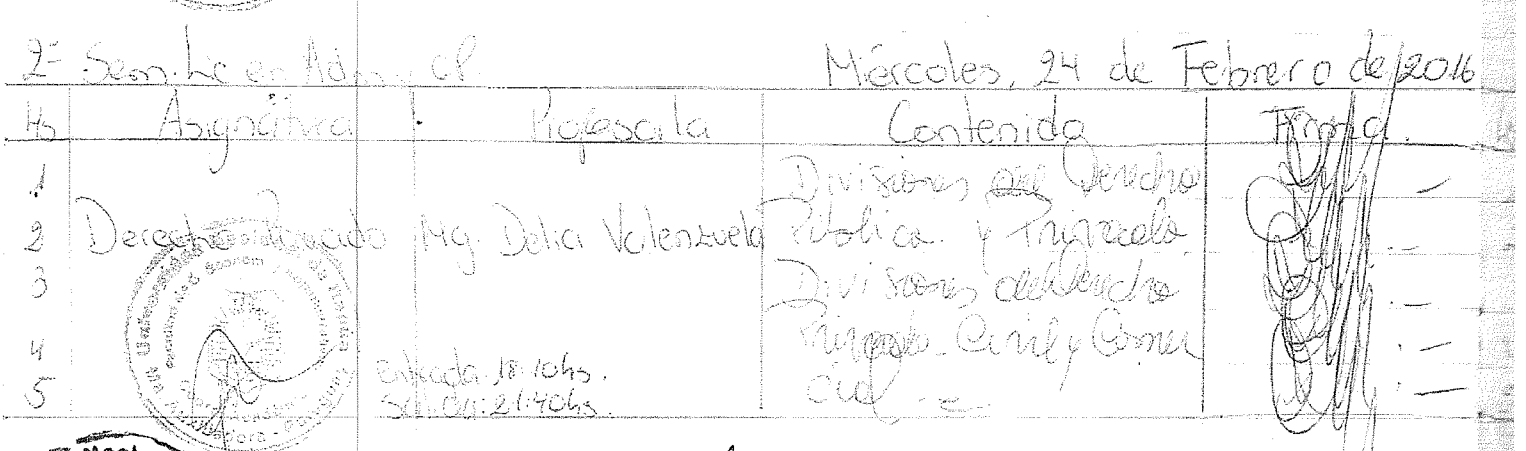 2º Sem. Lic en Adm y CP. Miércoles, 24 de Febrero de 2016
Hs Asignatura Profesor/a Contenido Firma.
1 Divisiones del Derecho
2 Derecho Privado Mg. Delia Valenzuela Público y Privado
3 Divisiones del Derecho
4 Privado. Civil y Comer
Entrada: 18:10hs.
5 Salida: 21:40hs. cial